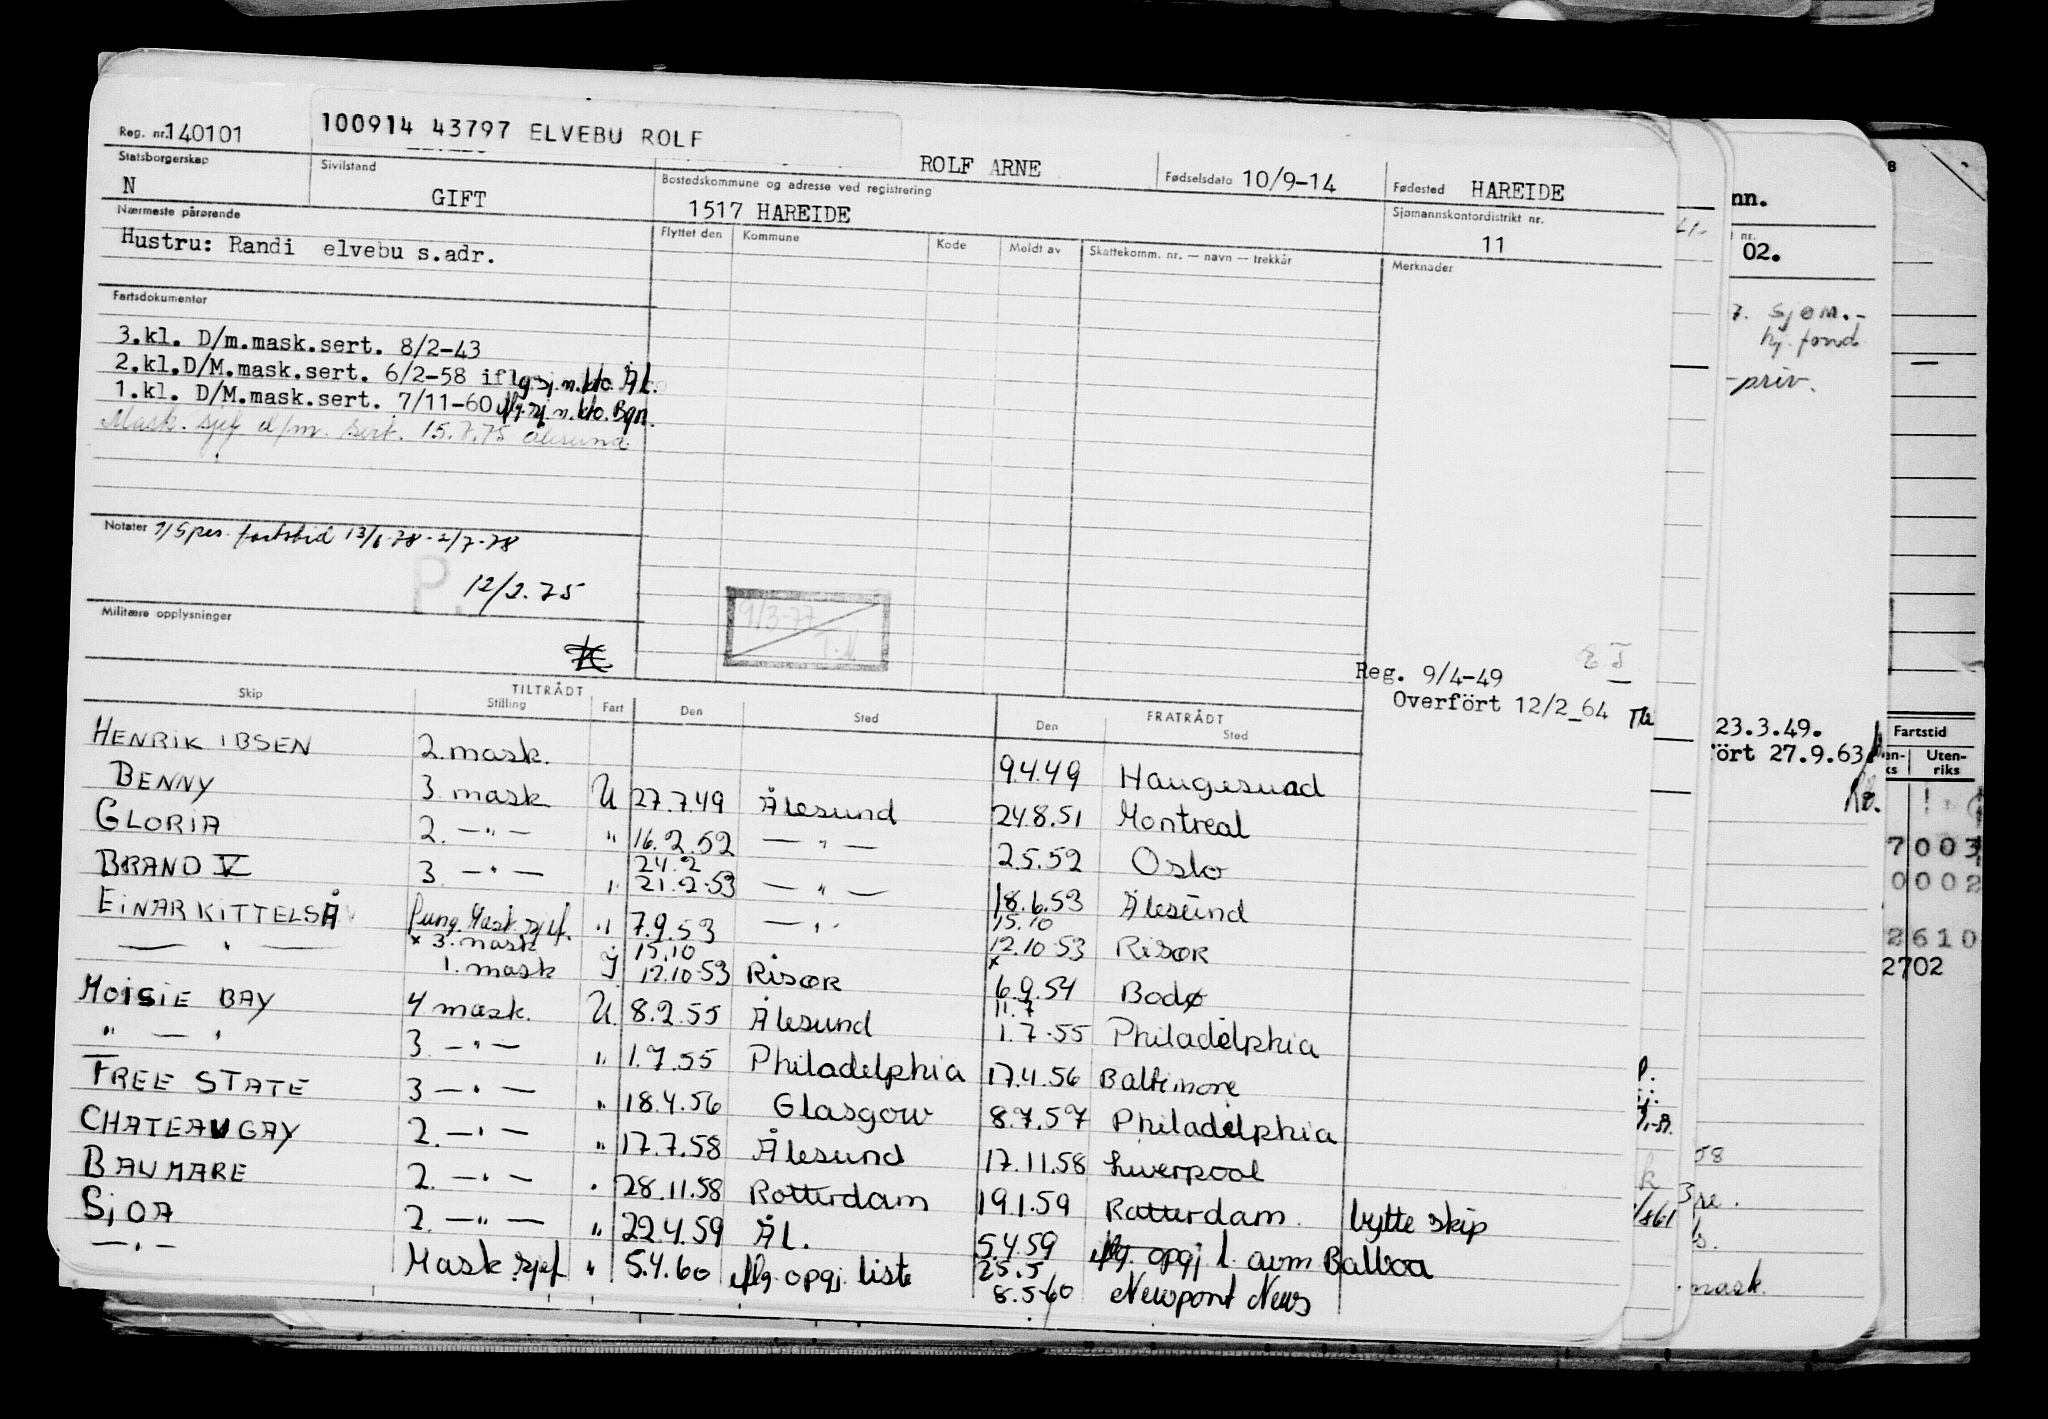 Reg. nr. 140101 100914 43797 ELVEBU ROLF
ROLF ARNE Fødselsdato 10/9-14 Fødested HAREIDE
Statsborgerskap N Sivilstand GIFT Bostedskommune og adresse ved registrering 1517 HAREIDE Sjømannskontordistrikt nr. 11
Nærmeste pårørende Flyttet den Kommune Kode Meldt av Skattekomm. nr. — navn — trekkår Merknader
Hustru: Randi elvebu s.adr.
Fartsdokumenter
3.kl. D/m.mask.sert. 8/2-43
2.kl.D/M.mask.sert. 6/2-58 iflg.sj.m.kto. Ål.
1.kl. D/M.mask.sert. 7/11-60 iflg.sj.m.kto. Bgn.
Mask. sjef d/m. sert. 15.7.75 Ålesund.
Notater 1/Spes. fartstid 13/6-78-2/7-78
P. 12/2.75
9/3-77
T.M
Militære opplysninger
E.T
Reg. 9/4-49
Overfört 12/2_64
Skip TILTRÅDT Stilling Fart Den Sted FRATRÅDT Den Sted
HENRIK IBSEN 2. mask. 9.4.49 Haugesund
BENNY 3. mask U 27.7.49 Ålesund 24.8.51 Montreal
GLORIA 2. —"— " 16.2.52 —"— 2.5.52 Oslo
24.2
BRAND V 3. —"— " 21.2.53 —"— 18.6.53 Ålesund
15.10
EINAR KITTELSÅ Pung Mask. sjef. " 7.9.53 —"— 12.10.53 Risør
x 3. mask 15.10 x
—"— 1. mask J 12.10.53 Risør 6.9.54 Bodø
11.7
MOISIE BAY 4 mask. U 8.2.55 Ålesund 1.7.55 Philadelphia
" — " 3. —"— " 1.7.55 Philadelphia 17.4.56 Baltimore
FREE STATE 3 —"— " 18.4.56 Glasgow 8.7.57 Philadelphia
CHATEAUGAY 2. —"— " 17.7.58 Ålesund 17.11.58 Liverpool
BAUMARE 2. —"— " 28.11.58 Rotterdam 19.1.59 Rotterdam. bytte skip
SJOA 2. —"— " 22.4.59 ÅL. 5.4.59 iflg. opgj l. avm Balboa
25.5
—"— Mask sjef " 5.4.60 iflg. opgj. liste 8.5.60 Newport News
nn.
nr.
02.
7. sjøm.-
hj. fond
-priv.
23.3.49.
ført 27.9.63
Fartstid
Uten-
riks
7003
0002
2610
2702
58
mask.